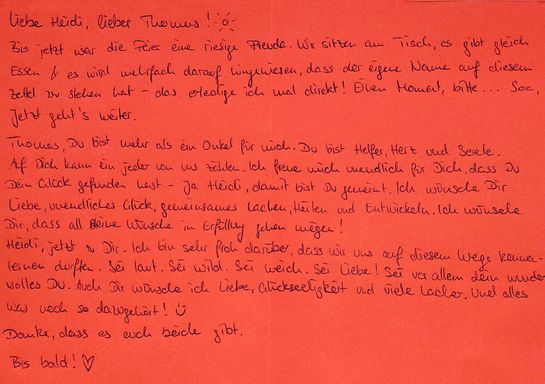 Liebe Heidi, lieber Thomas!
Bis jetzt war die Feier eine riesige Freude. Wir sitzen am Tisch, es gibt gleich
Essen & es wird mehrfach darauf hingewiesen, dass der eigene Name auf diesem
Zettel zu stehen hat - das erledige ich mal direkt! Einen Moment, bitte... Soo,
jetzt geht's weiter.
Thomas, Du bist mehr als ein Onkel für mich. Du bist Helfer, Herz und Seele.
Auf Dich kann ein jeder von uns zählen. Ich freue mich unendlich für Dich, dass Du
Dein Glück gefunden hast - Ja Heidi, damit bist Du gemeint. Ich wünsche Dir
Liebe, unendliches Glück, gemeinsames Lachen, Heilen und Entwickeln. Ich wünsche
Dir, dass all Deine Wünsche in Erfüllung gehen mögen!
Heidi, jetzt zu Dir. Ich bin sehr froh darüber, dass wir uns auf diesem Wege kennen-
lernen durften. Sei laut. Sei wild. Sei weich. Sei Liebe! Sei vor allem dein wunder
volles Du. Auch Dir wünsche ich Liebe, Glückseeligkeit und viele Lacher. Und alles
was noch so dazugehört!
Danke, dass es euch beide gibt.
Bis bald!